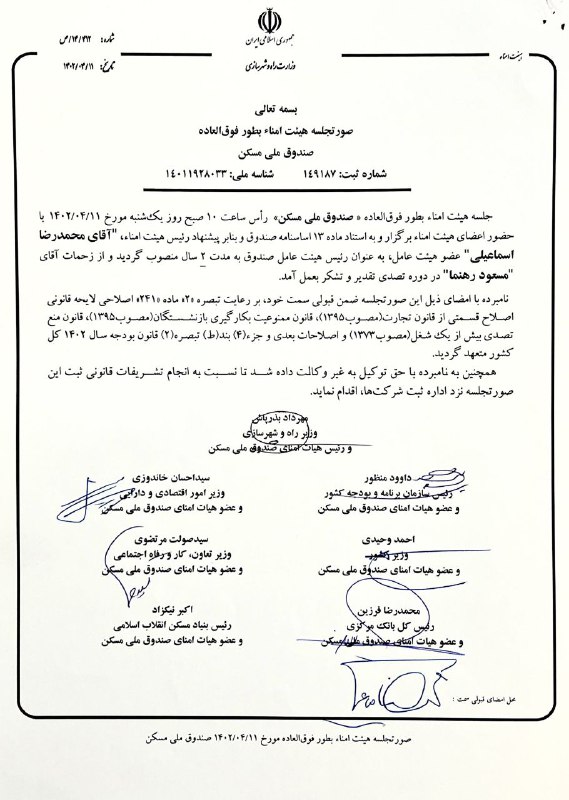 جمهوری اسلامی ایران
وزارت راه و شهرسازی
شماره: ۱۴/۴۱۲/ص
تاریخ: ۱۴۰۲/۰۴/۱۱
هیئت امناء
بسمه تعالی
صورتجلسه هیئت امناء بطور فوق‌العاده
صندوق ملی مسکن
شماره ثبت: ۱۴۹۱۸۷ شناسه ملی: ۱۴۰۱۱۹۲۸۰۳۳
جلسه هیئت امناء بطور فوق‌العاده « صندوق ملی مسکن» رأس ساعت ۱۰ صبح روز یک‌شنبه مورخ ۱۴۰۲/۰۴/۱۱ با
حضور اعضای هیئت امناء برگزار و به استناد ماده ۱۳ اساسنامه صندوق و بنابر پیشنهاد رئیس هیئت امناء، "آقای محمدرضا
اسماعیلی" عضو هیئت عامل، به عنوان رئیس هیئت عامل صندوق به مدت ۲ سال منصوب گردید و از زحمات آقای
"مسعود رهنما" در دوره تصدی تقدیر و تشکر بعمل آمد.
نامبرده با امضای ذیل این صورتجلسه ضمن قبولی سمت خود، بر رعایت تبصره «۲» ماده «۲۴۱» اصلاحی لایحه قانونی
اصلاح قسمتی از قانون تجارت(مصوب۱۳۹۵)، قانون ممنوعیت بکارگیری بازنشستگان(مصوب۱۳۹۵)، قانون منع
تصدی بیش از یک شغل(مصوب۱۳۷۳) و اصلاحات بعدی و جزء(۴) بند(ط) تبصره(۲) قانون بودجه سال ۱۴۰۲ کل
کشور متعهد گردید.
همچنین به نامبرده با حق توکیل به غیر وکالت داده شد تا نسبت به انجام تشریفات قانونی ثبت این
صورتجلسه نزد اداره ثبت شرکت‌ها، اقدام نماید.
مهرداد بذرپاش
وزیر راه و شهرسازی
و رئیس هیات امنای صندوق ملی مسکن
داوود منظور
رئیس سازمان برنامه و بودجه کشور
و عضو هیات امنای صندوق ملی مسکن
سیداحسان خاندوزی
وزیر امور اقتصادی و دارایی
و عضو هیات امنای صندوق ملی مسکن
احمد وحیدی
وزیر کشور
و عضو هیات امنای صندوق ملی مسکن
سیدصولت مرتضوی
وزیر تعاون، کار و رفاه اجتماعی
و عضو هیات امنای صندوق ملی مسکن
محمدرضا فرزین
رئیس کل بانک مرکزی
و عضو هیات امنای صندوق ملی مسکن
اکبر نیکزاد
رئیس بنیاد مسکن انقلاب اسلامی
و عضو هیات امنای صندوق ملی مسکن
محل امضای قبولی سمت :
صورتجلسه هیئت امناء بطور فوق‌العاده مورخ ۱۴۰۲/۰۴/۱۱ صندوق ملی مسکن